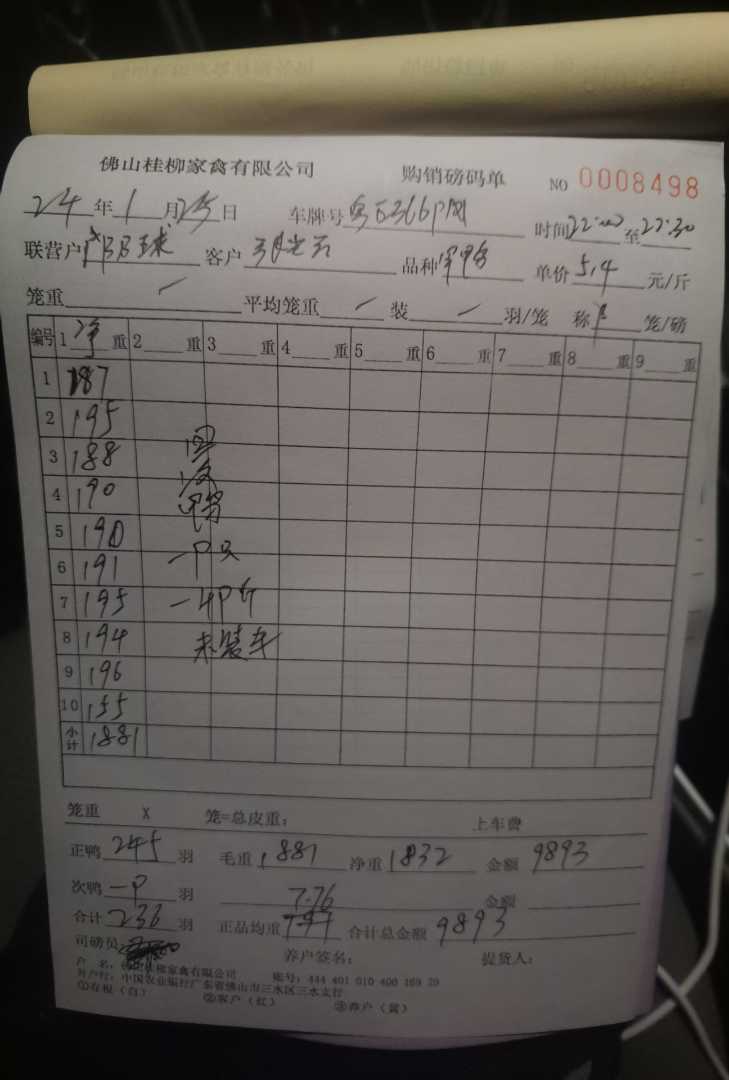 佛山桂柳家禽有限公司 购销磅码单 NO 0008498
24年1月25日 车牌号 时间22:00至22:30
联营户 客户 品种 单价5.4元/斤
笼重 平均笼重 装 羽/笼 称 笼/磅
编号 1净重 2重 3重 4重 5重 6重 7重 8重 9重
1 187
2 195
3 188
4 190
5 190
6 191
7 195
8 194 未装车
9 196
10 155
小计 1881
笼重 X 笼=总皮重: 上车费
正鸭245羽 毛重1881 净重1832 金额9893
次鸭 羽 7.76 金额
合计236羽 正品均重 合计总金额9893
司磅员: 养户签名: 提货人:
户 名: 佛山桂柳家禽有限公司 账号: 444 401 010 400 169 29
开户行: 中国农业银行广东省佛山市三水区三水支行
①存根(白) ②客户(红) ③养户(黄)